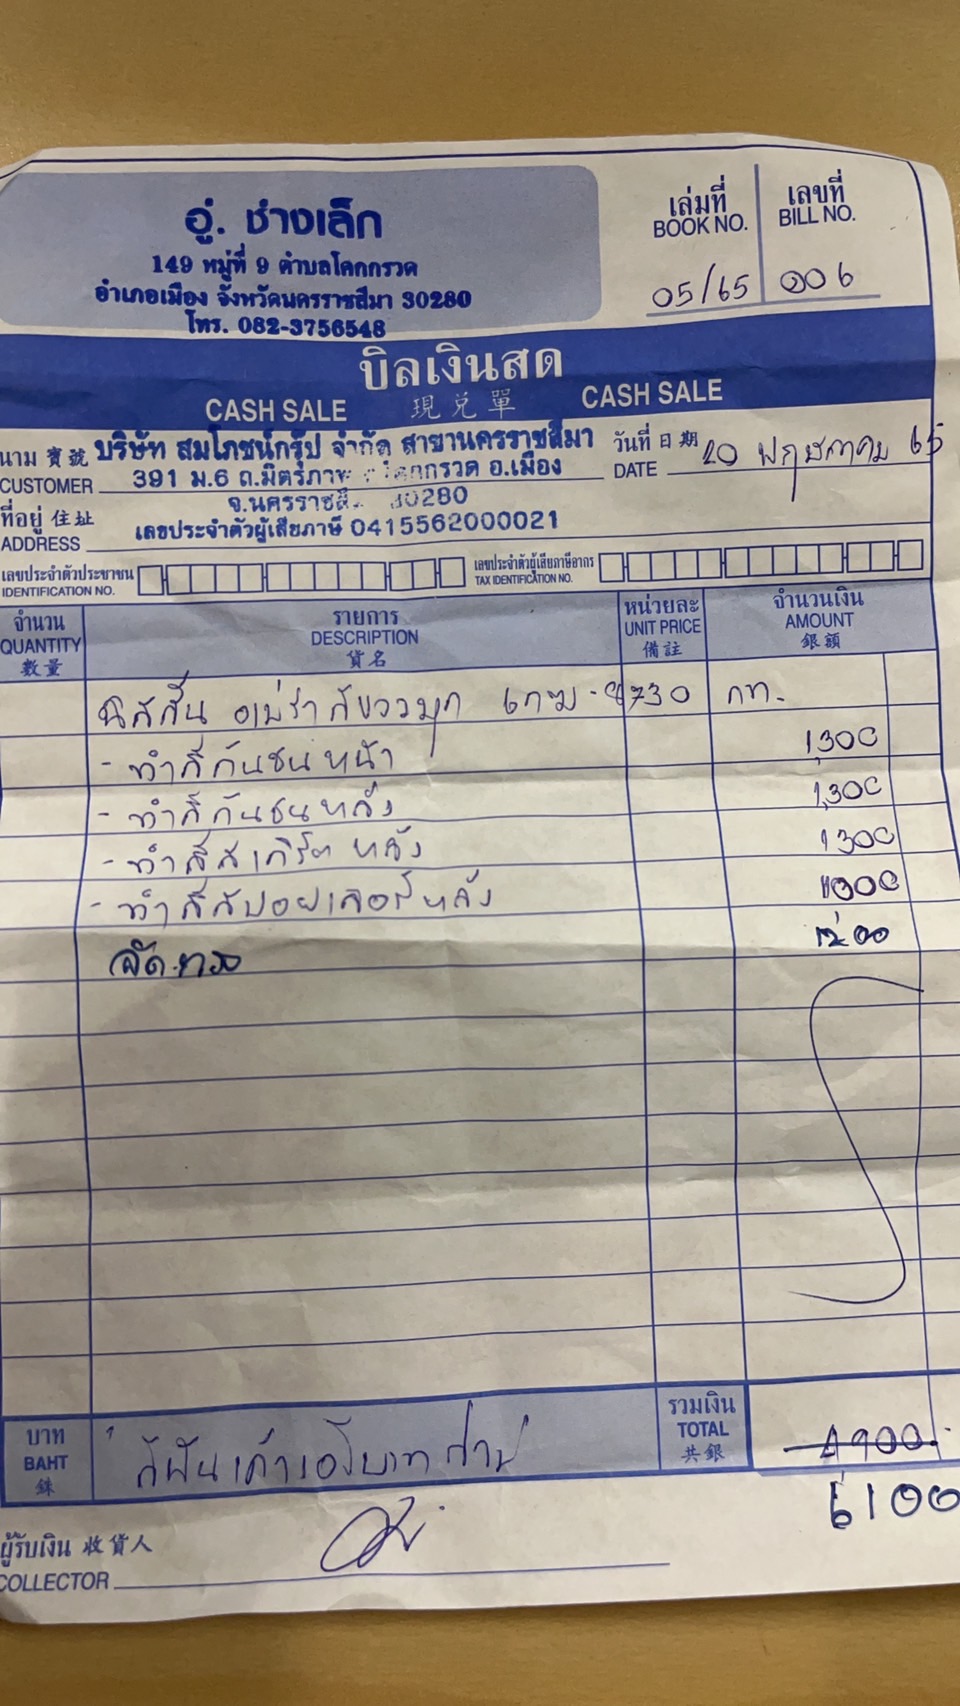 อู่. ช่างเล็ก
149 หมู่ที่ 9 ตำบลโคกกรวด
อำเภอเมือง จังหวัดนครราชสีมา 30280
โทร. 082-3756548
เล่มที่ เลขที่
BOOK NO. BILL NO.
05/65 006
บิลเงินสด
CASH SALE 現兌單 CASH SALE
นาม 寳號 บริษัท สมโภชน์กรุ๊ป จำกัด สาขานครราชสีมา วันที่ 日期
CUSTOMER 391 ม.6 ถ.มิตรภาพ โคกกรวด อ.เมือง DATE 20 พฤษภาคม 65
ที่อยู่ 住址 จ.นครราชสีมา 30280
ADDRESS เลขประจำตัวผู้เสียภาษี 0415562000021
เลขประจำตัวประชาชน เลขประจำตัวผู้เสียภาษีอากร
IDENTIFICATION NO. TAX IDENTIFICATION NO.
จำนวน รายการ หน่วยละ จำนวนเงิน
QUANTITY DESCRIPTION UNIT PRICE AMOUNT
數量 貨名 備註 銀額
นิสสัน อเมร่า สีขาวมุก 8730 กท.
- ทำสีกันชนหน้า 1,300
- ทำสีกันชนหลัง 1,300
- ทำสีสเกิร์ตหลัง 1300
- ทำสีสปอยเลอร์หลัง 1000
1200
บาท รวมเงิน
BAHT TOTAL 4900.
銖 สี่พันเก้าร้อยบาทถ้วน 共銀
6100
ผู้รับเงิน 收貨人
COLLECTOR